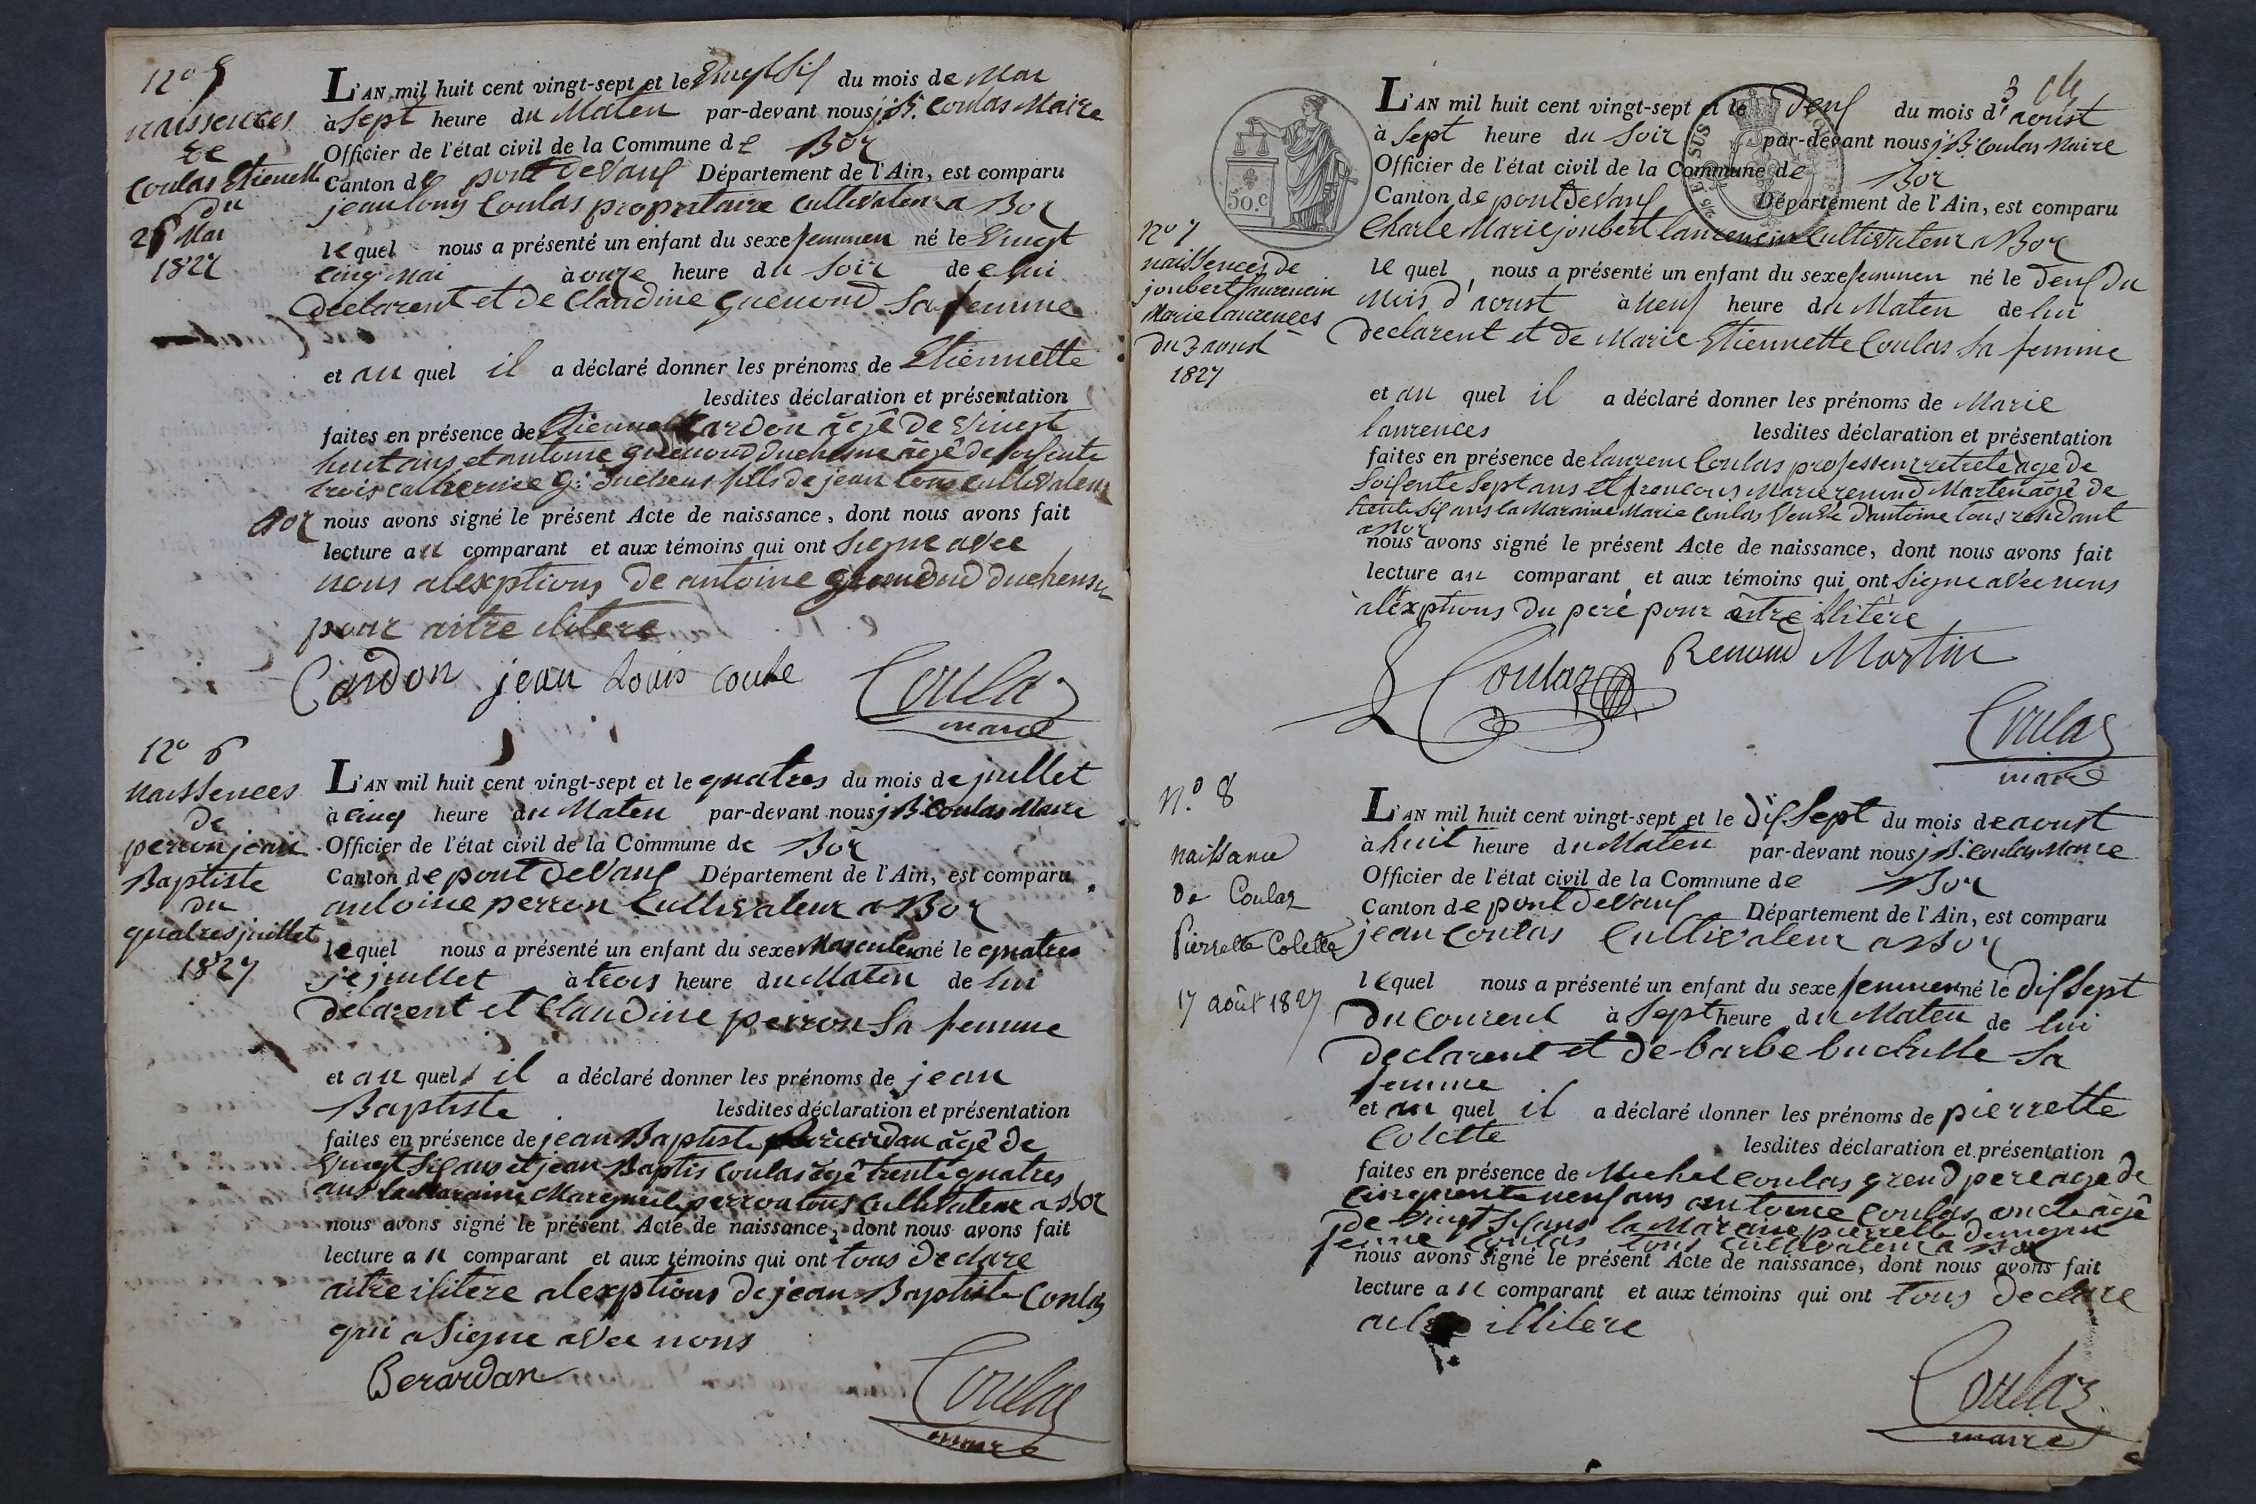 N° 5
naissences
de
Coulas Etienette
du
26 Mai
1827
L'AN mil huit cent vingt-sept et le Vingt Sis du mois de Mai
à Sept heure du Maten par-devant nous j B. Coulas Maire
Officier de l'état civil de la Commune de Boz
Canton de pont DeVaus Département de l'Ain, est comparu
jean louis Coulas propritaire Cullivateur a Boz
lequel nous a présenté un enfant du sexe femmen né le Vingt
cinq Mai à onze heure du Soir de e lui
declarent et de Claudine guemond Sa femme
et au quel il a déclaré donner les prénoms de Etiennette
lesdites déclaration et présentation
faites en présence de Etienne Cardon âgê de Vingt
huit ans et antoine guemond duchesne âgê de soisente
trois catherine g. duchens fille de jean tous cullivateur
a Boz nous avons signé le présent Acte de naissance, dont nous avons fait
lecture au comparant et aux témoins qui ont Signe avec
nous alexptions de antoine guemond duchensn
pour aitre ilitere
Cardon jean Louis coula
Coulas
maire
N° 6
naissences
de
perron jean
Baptiste
du
quatres juillet
1827
L'AN mil huit cent vingt-sept et le quatres du mois de juillet
à cinq heure du Maten par-devant nous j B. Coulas Maire
Officier de l'état civil de la Commune de Boz
Canton de pont DeVaus Département de l'Ain, est comparu
antoine perron Cullivateur a Boz
lequel nous a présenté un enfant du sexe Masculen né le quatres
de juillet à trois heure du Maten de lui
delarent et Claudine perron Sa femme
et au quel il a déclaré donner les prénoms de jean
Baptiste lesdites déclaration et présentation
faites en présence de jean Baptiste Berardan âgê de
Vingt Sis ans et jean Baptis Coulas âgê trente quatres
ans la Maraine perron tous Cullivateur a Boz
nous avons signé le présent Acte de naissance, dont nous avons fait
lecture au comparant et aux témoins qui ont tous declare
aitre ilitere alexptions de jean Baptiste Coulas
qui a Signe avec nous
Berardan
Coulas
maire
50.C
N° 7
naissences de
joubert laurencin
Marie laurences
du 3 aoust
1827
L'AN mil huit cent vingt-sept et le deus du mois d'aoust
à Sept heure du Soir par-devant nous j B. Coulas Maire
Officier de l'état civil de la Commune de Boz
Canton de pont DeVaus Département de l'Ain, est comparu
Charle Marie joubert laurencin Cultivateur a Boz
lequel nous a présenté un enfant du sexe femmen né le deus du
mois d'aoust à neuf heure du Maten de lui
declarent et de Marie Etiennette Coulas Sa femme
et au quel il a déclaré donner les prénoms de Marie
laurences lesdites déclaration et présentation
faites en présence de laurent Coulas professeur retretê age de
Soisente Sept ans et francois Marie renoud Marten âgê de
trente Sis ans la Maraine Marie Coulas Veuve d'antoine tous residant
a Boz
nous avons signé le présent Acte de naissance, dont nous avons fait
lecture au comparant et aux témoins qui ont Signe avec nous
alexptions du pere pour aitre illitère
L Coulas Renoud Martin
Coulas
maire
N.° 8
naissance
de Coulas
Pierrette Colette
17 août 1827
L'AN mil huit cent vingt-sept et le dis Sept du mois de aoust
à huit heure du Maten par-devant nous j B. Coulas Maire
Officier de l'état civil de la Commune de Boz
Canton de pont DeVaus Département de l'Ain, est comparu
jean Coulas Cullivateur a Boz
lequel nous a présenté un enfant du sexe femmen né le dis Sept
du courent à Sept heure du Maten de lui
declarent et de barbe buchalle Sa
femme
et au quel il a déclaré donner les prénoms de pierrette
Colette lesdites déclaration et présentation
faites en présence de Michel Coulas grend pere age de
cinquente neuf ans antoine Coulas oncle âgê
de vingt Sis ans la Maraine pierrette
femme Coulas tous cullivateur a Boz
nous avons signé le présent Acte de naissance, dont nous avons fait
lecture au comparant et aux témoins qui ont tous declare
illitere
Coulas
maire